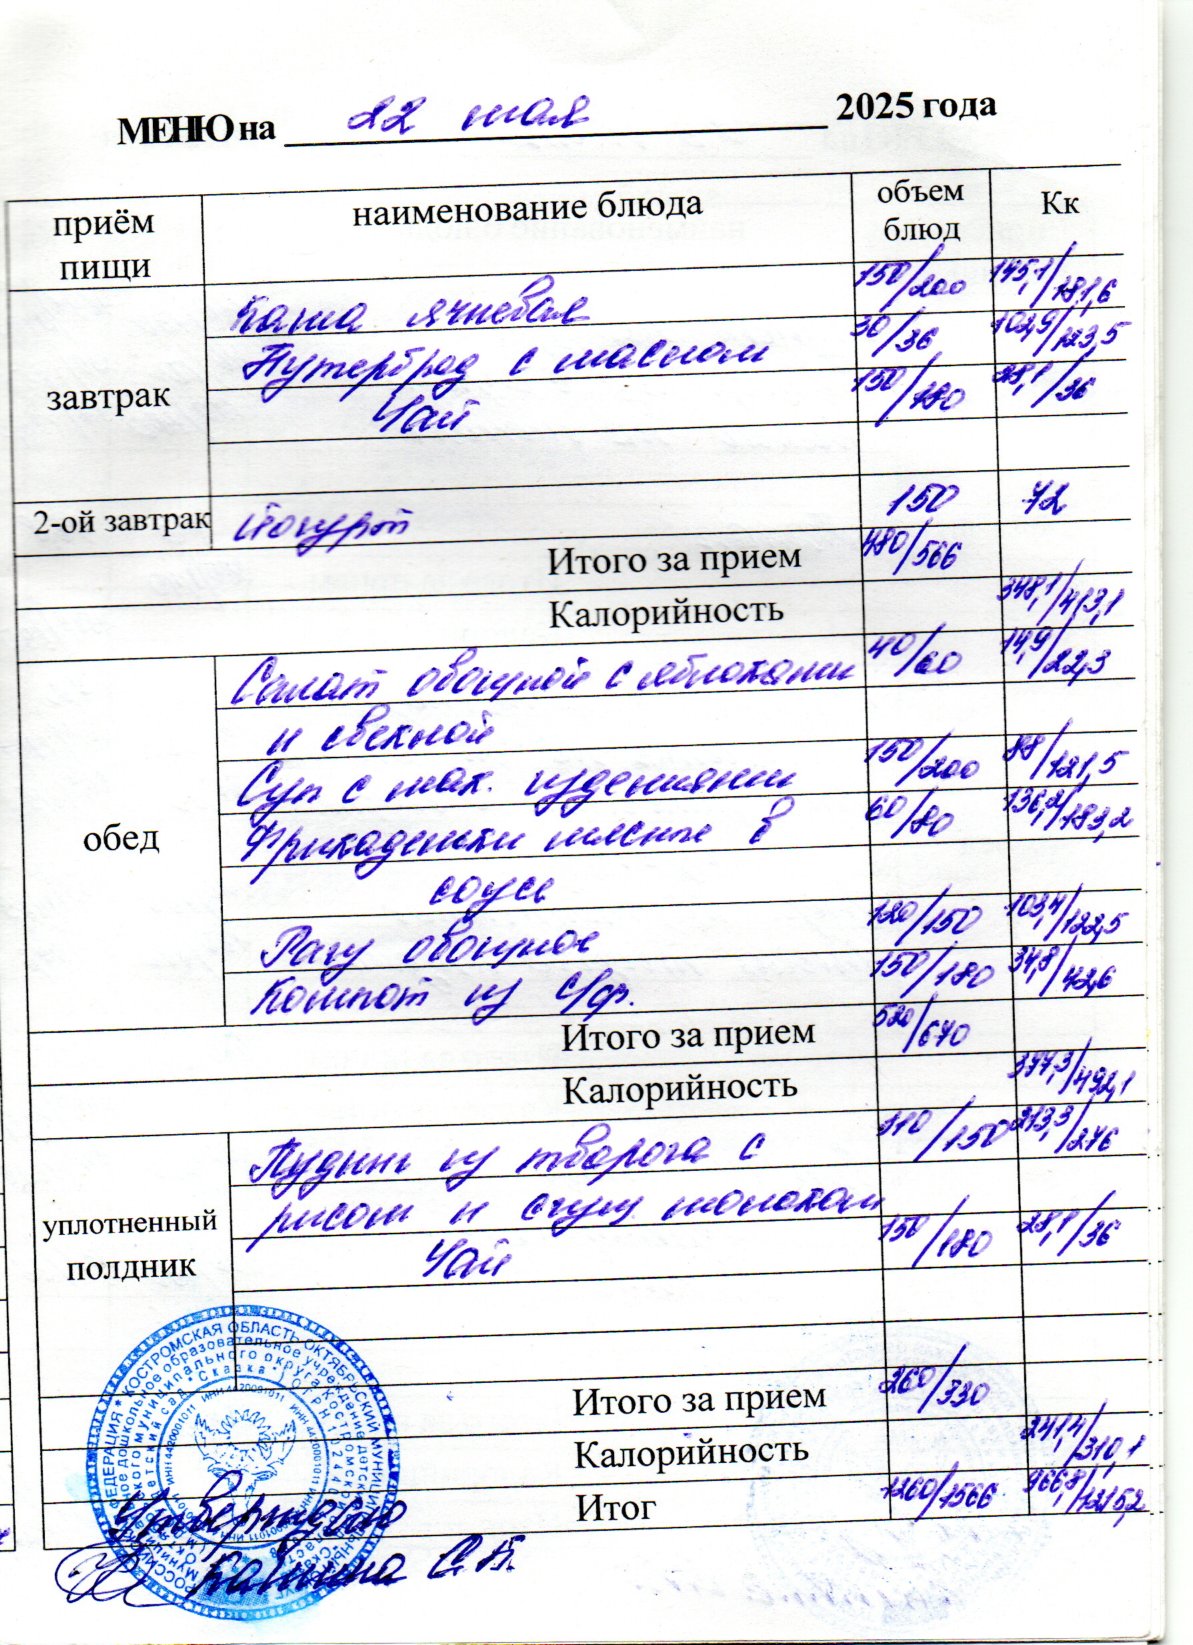 МЕНЮ на 22 мая 2025 года
приём пищи наименование блюда объем блюд Кк
завтрак
Каша ячневая 150/200 145,1/181,6
Бутерброд с маслом 30/36 102,9/123,5
Чай 150/180 28,1/36
2-ой завтрак Йогурт 150 72
Итого за прием 480/566
Калорийность 348,1/413,1
обед
Салат овощной с яблоками 40/60 14,9/22,3
и свеклой
Суп с мак. изделиями 150/200 88/121,5
Фрикадельки мясные в 60/80 136,2/183,2
соусе
Рагу овощное 120/150 103,4/122,5
Компот из с/ф. 150/180 34,8/42,6
Итого за прием 520/670
Калорийность 377,3/492,1
уплотненный полдник
Пудинг из творога с 110/150 213,3/276
рисом и сгущ молоком
Чай 150/180 28,1/36
Итого за прием 260/330
Калорийность 241,4/310,1
Итог 1260/1566 966,8/1215,2
КОСТРОМСКАЯ ОБЛАСТЬ ОКТЯБРЬСКИЙ
дошкольное образовательное учреждение
муниципального округа Костромской
детский сад "Сказка"
Утверждаю
Калинина С.В.